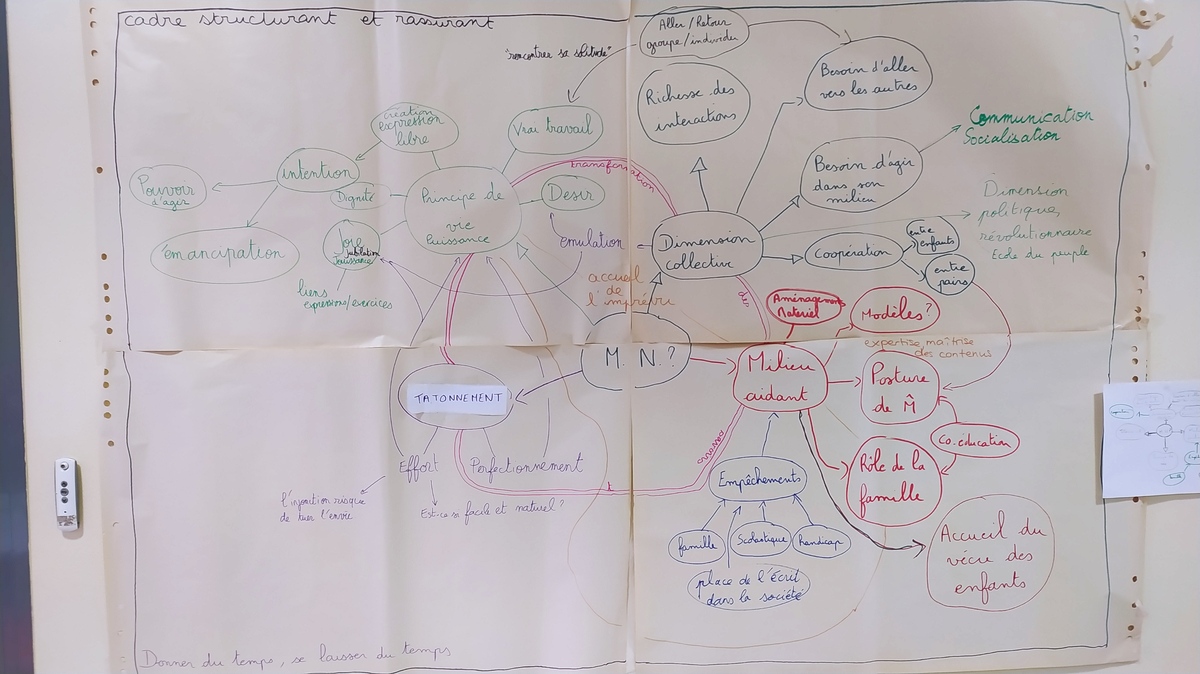 cadre structurant et rassurant
Aller / Retour
groupe / individu
"rencontrer sa solitude"
Besoin d'aller
vers les autres
Richesse des
interactions
Création
expression
libre
Vrai travail
Communication
Socialisation
transformation
intention
Besoin d'agir
dans son
milieu
Pouvoir
d'agir
Dignité
Principe de
vie
Puissance
Désir
Dimension
politique,
révolutionnaire
Ecole du peuple
émancipation
Joie
jubilation
Jouissance
émulation
Dimension
collective
Coopération
entre
enfants
entre
pairs
liens
expressions/exercices
accueil
de
l'imprévu
des
Aménagement
Matériel
Modèles?
M. N. ?
expertise, maîtrise
des contenus
Milieu
aidant
Posture
de M̂
TATONNEMENT
Co.éducation
Effort
Perfectionnement
Empêchements
Rôle de la
famille
l'injonction risque
de tuer l'envie
Est-ce si facile et naturel ?
famille
Scolastique
handicap
Accueil du
vécu des
enfants
place de l'écrit
dans la société
Donner du temps, se laisser du temps